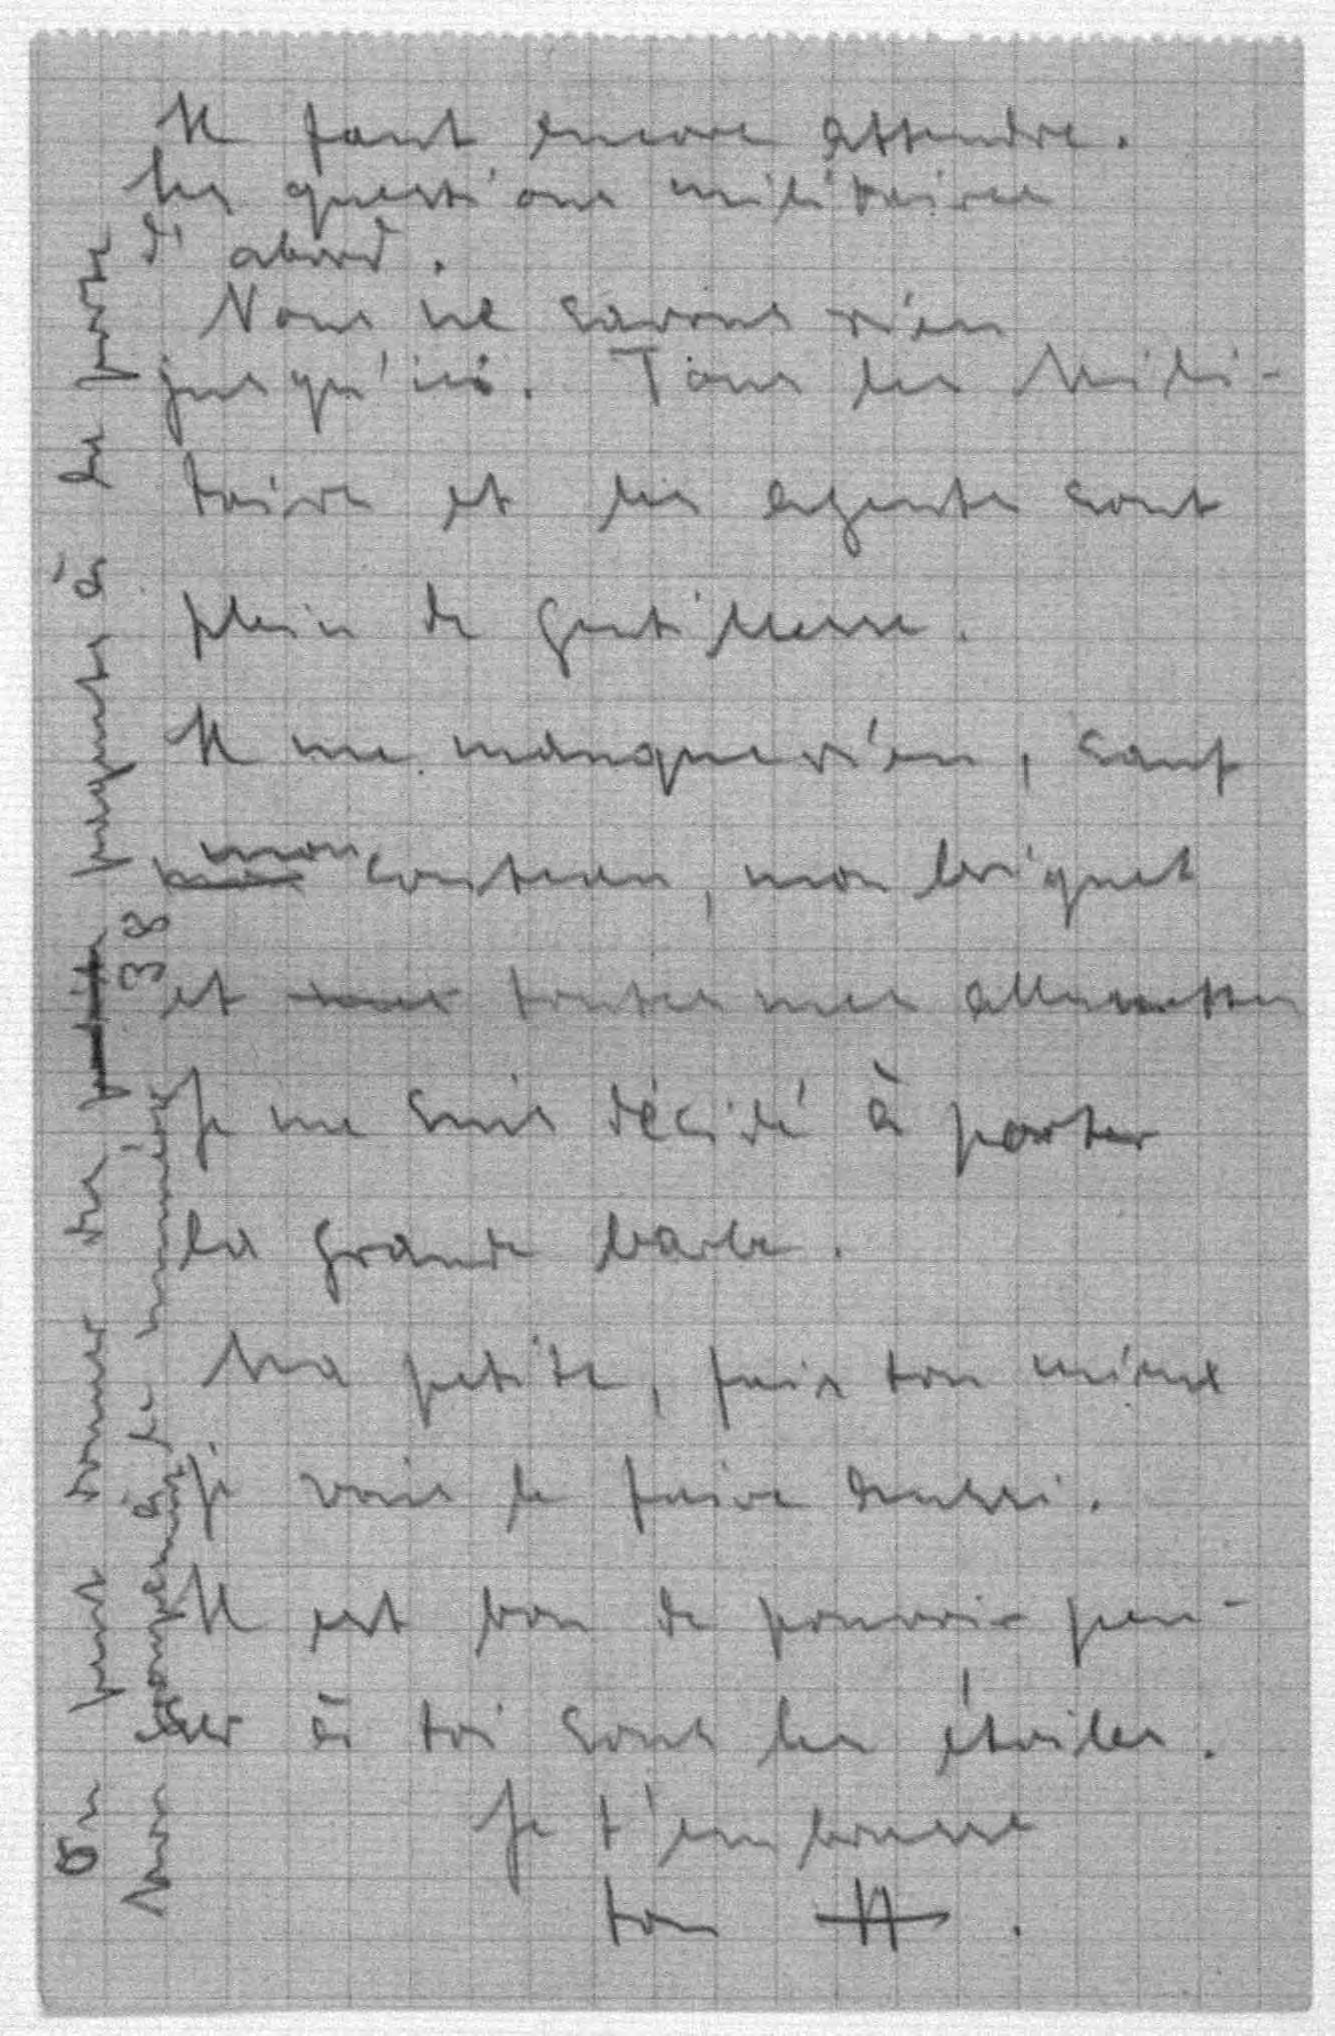 Il faut encore attendre.
Les questions militaires
d'abord.
Nous ne savons rien
jusqu'ici. Tous les Mili-
taire et les agents sont
plein de gentillesse.
Il me manque rien, sauf
mon couteau, mon briquet
et toutes mes allumettes
Je me suis décidé à porter
la grande barbe.
Ma petite, fais ton mieux
je vais le faire aussi.
Il est bon de pouvoir pen-
ser à toi sous les étoiles.
Je t'embrasse
ton H.
On peut donner des paquets à la porte
Mon à le numéro 38